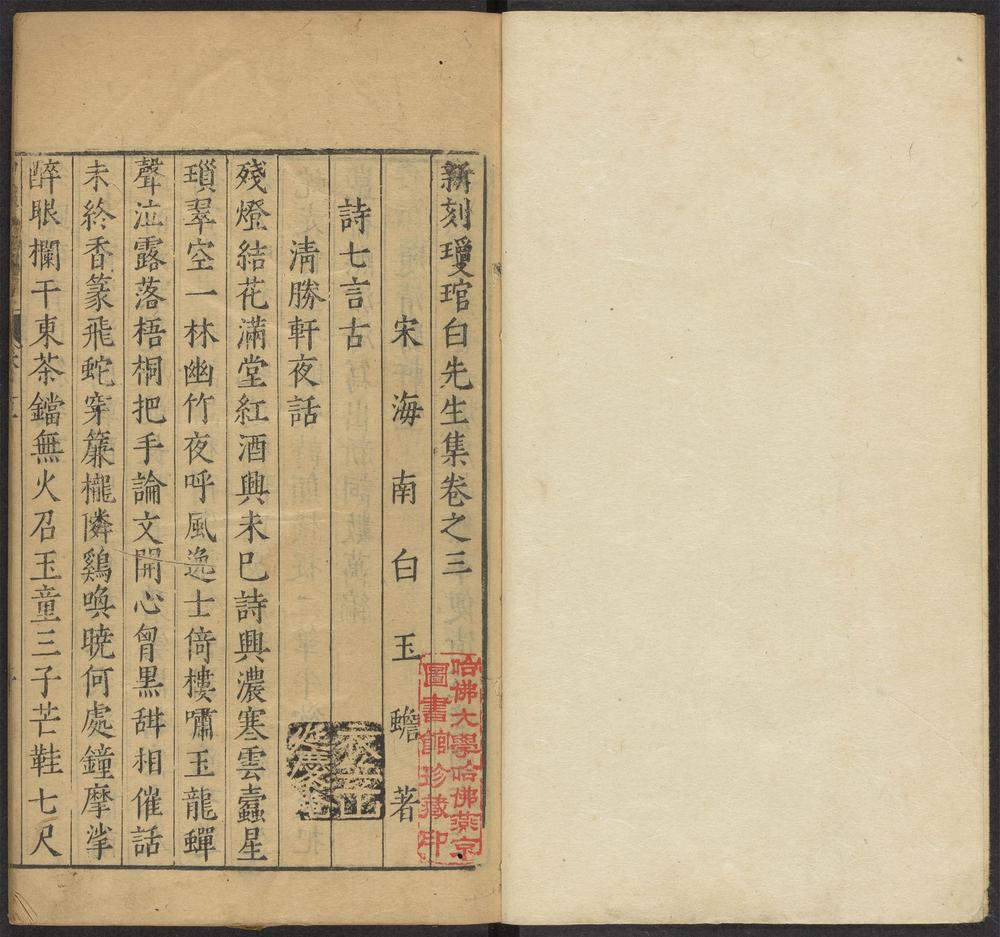 新刻瓊琯白先生集卷之三
宋海南白玉蟾著
詩七言古
淸勝軒夜話
殘燈結花滿堂紅酒興未已詩興濃寒雲蠹星
瑣翠空一林幽竹夜呼風逸士倚樓嘯玉龍蟬
聲泣露落梧桐把手論文開心胷黑甜相催話
未終香篆飛蛇穿簾櫳隣鷄喚曉何處鐘摩挲
醉眼欄干東茶鐺無火召玉童三子芒鞋七尺
哈佛大學哈佛燕京
圖書館珍藏印